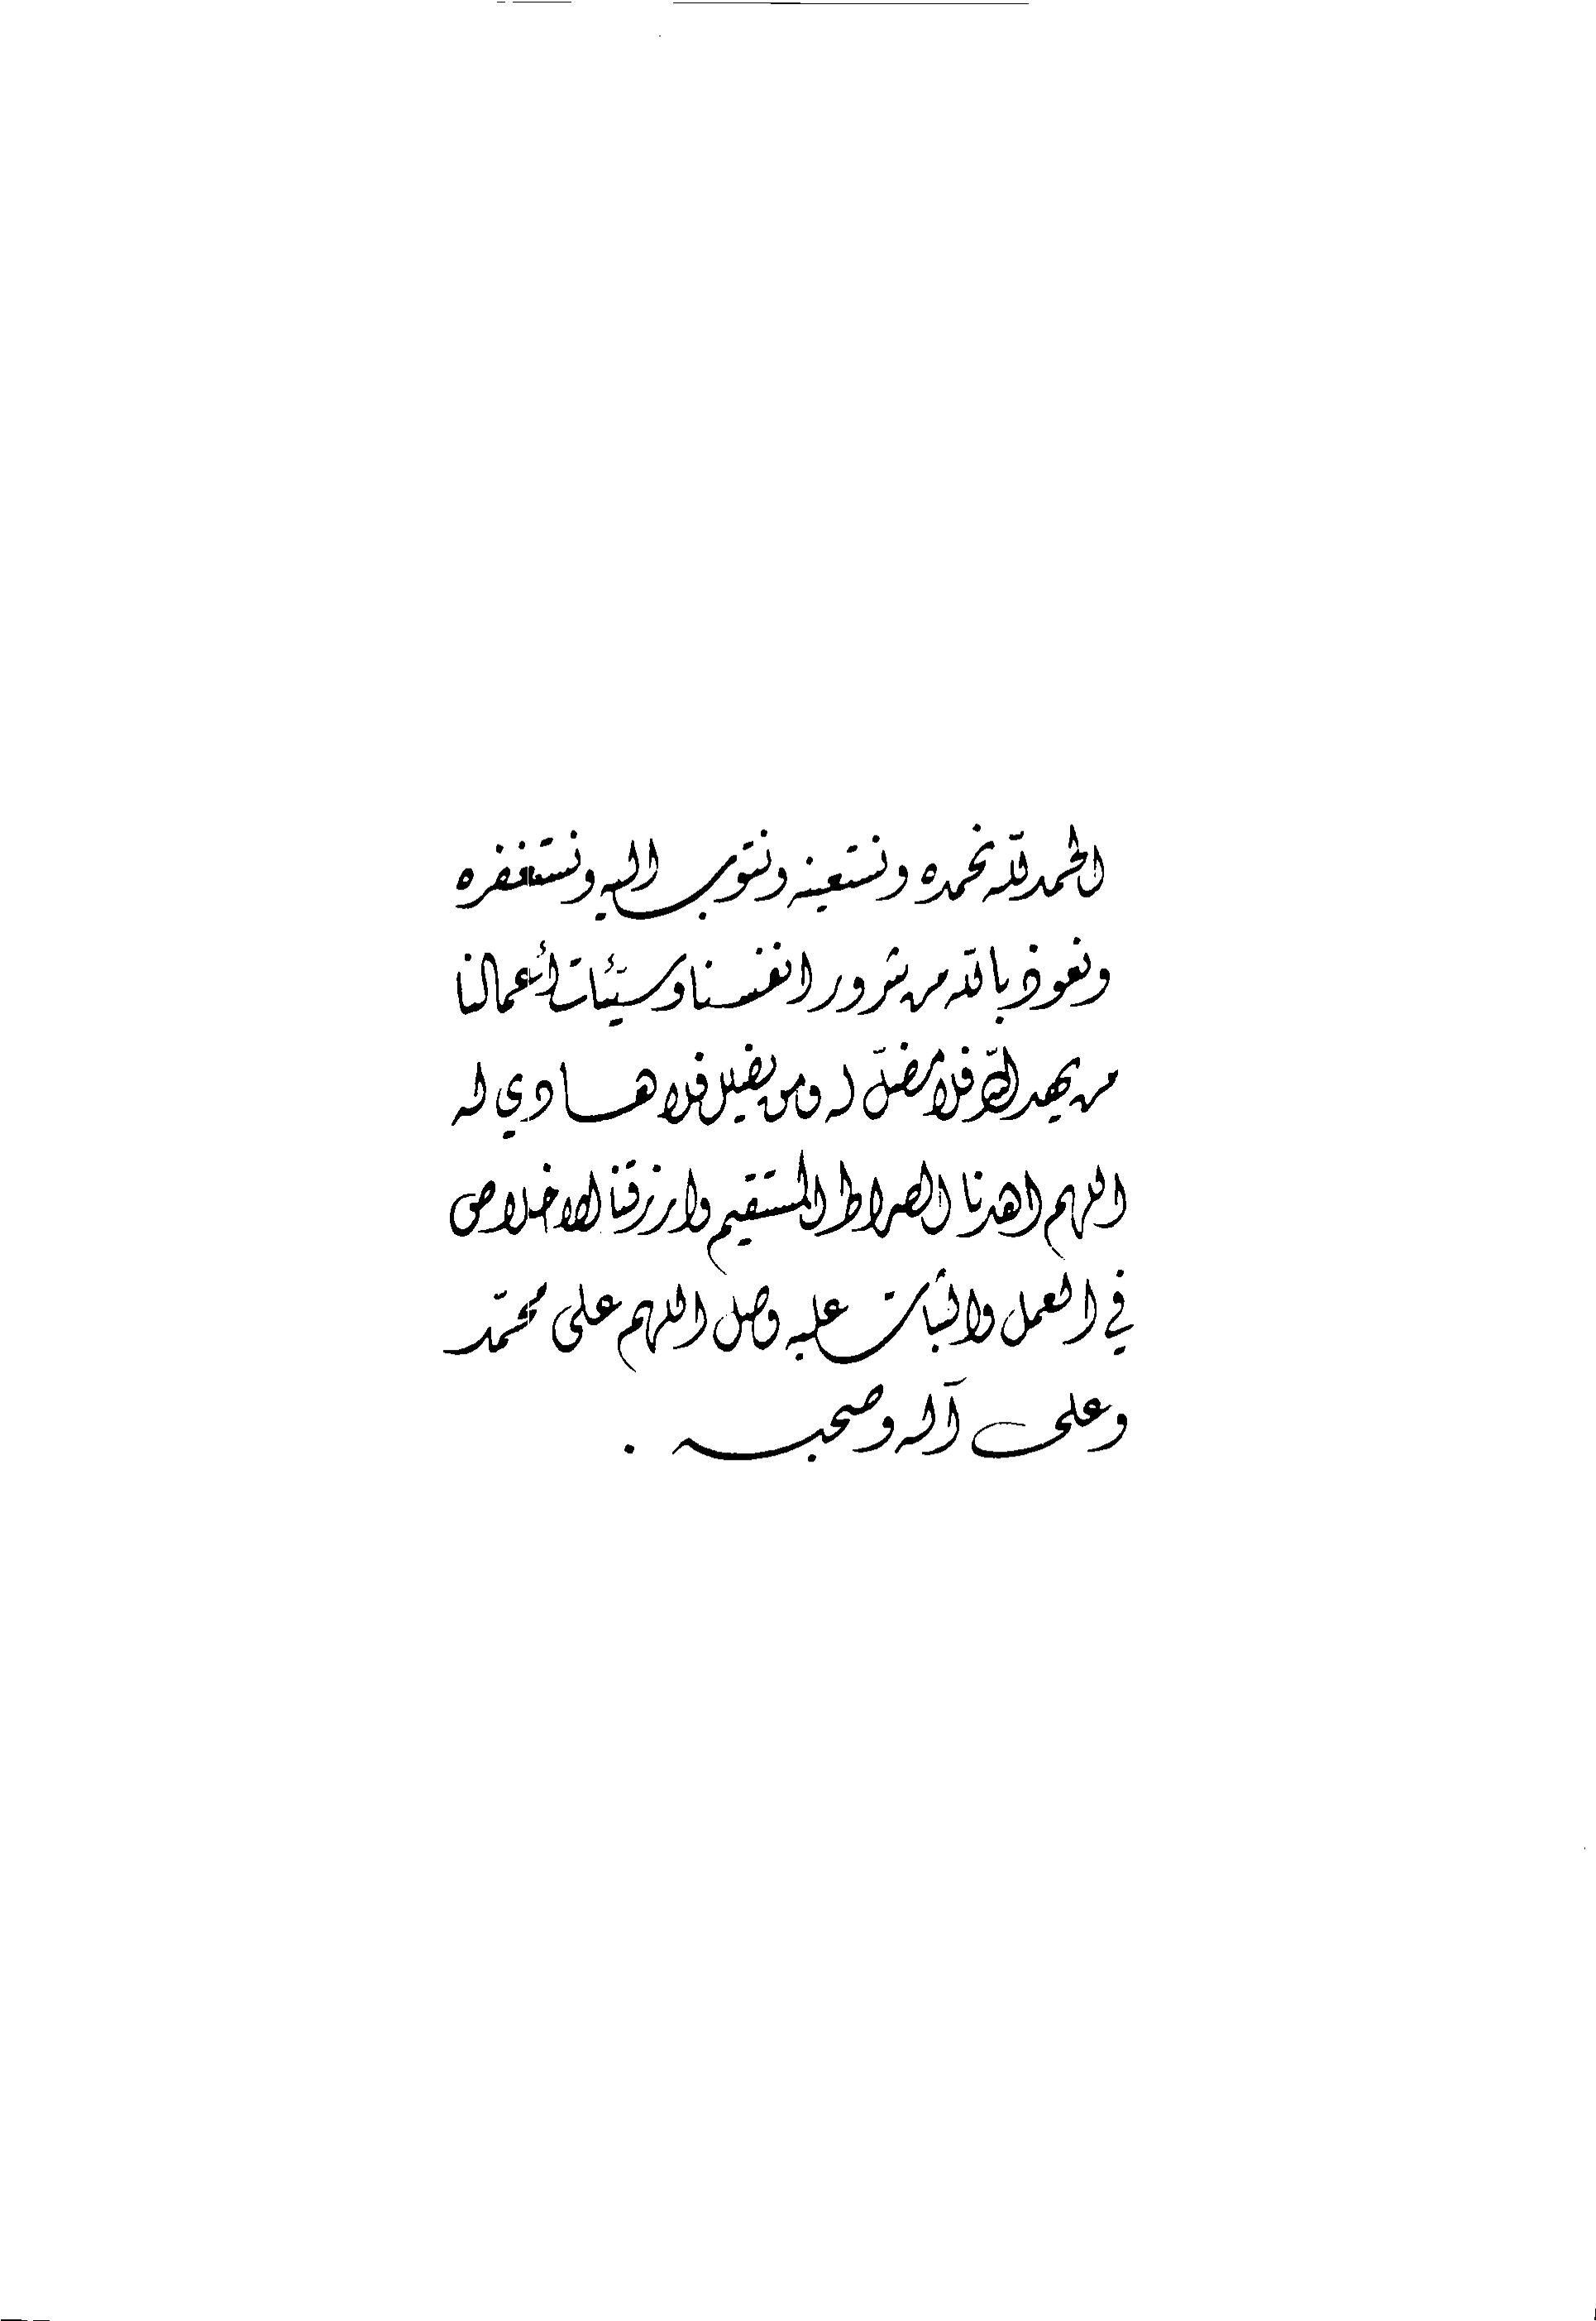 الحمد لله نحمده ونستعينه ونتوب اليه ونستغفره
ونعوذ بالله من شرور انفسنا وسيّئات أعمالنا
من يهد الله فلا مضلّ له ومن يضلل فلا هادي له
اللهم اهدنا الصراط المستقيم وارزقنا الاخلاص
في العمل والثبات عليه وصل اللهم على محمّد
وعلى آله وصحبه .